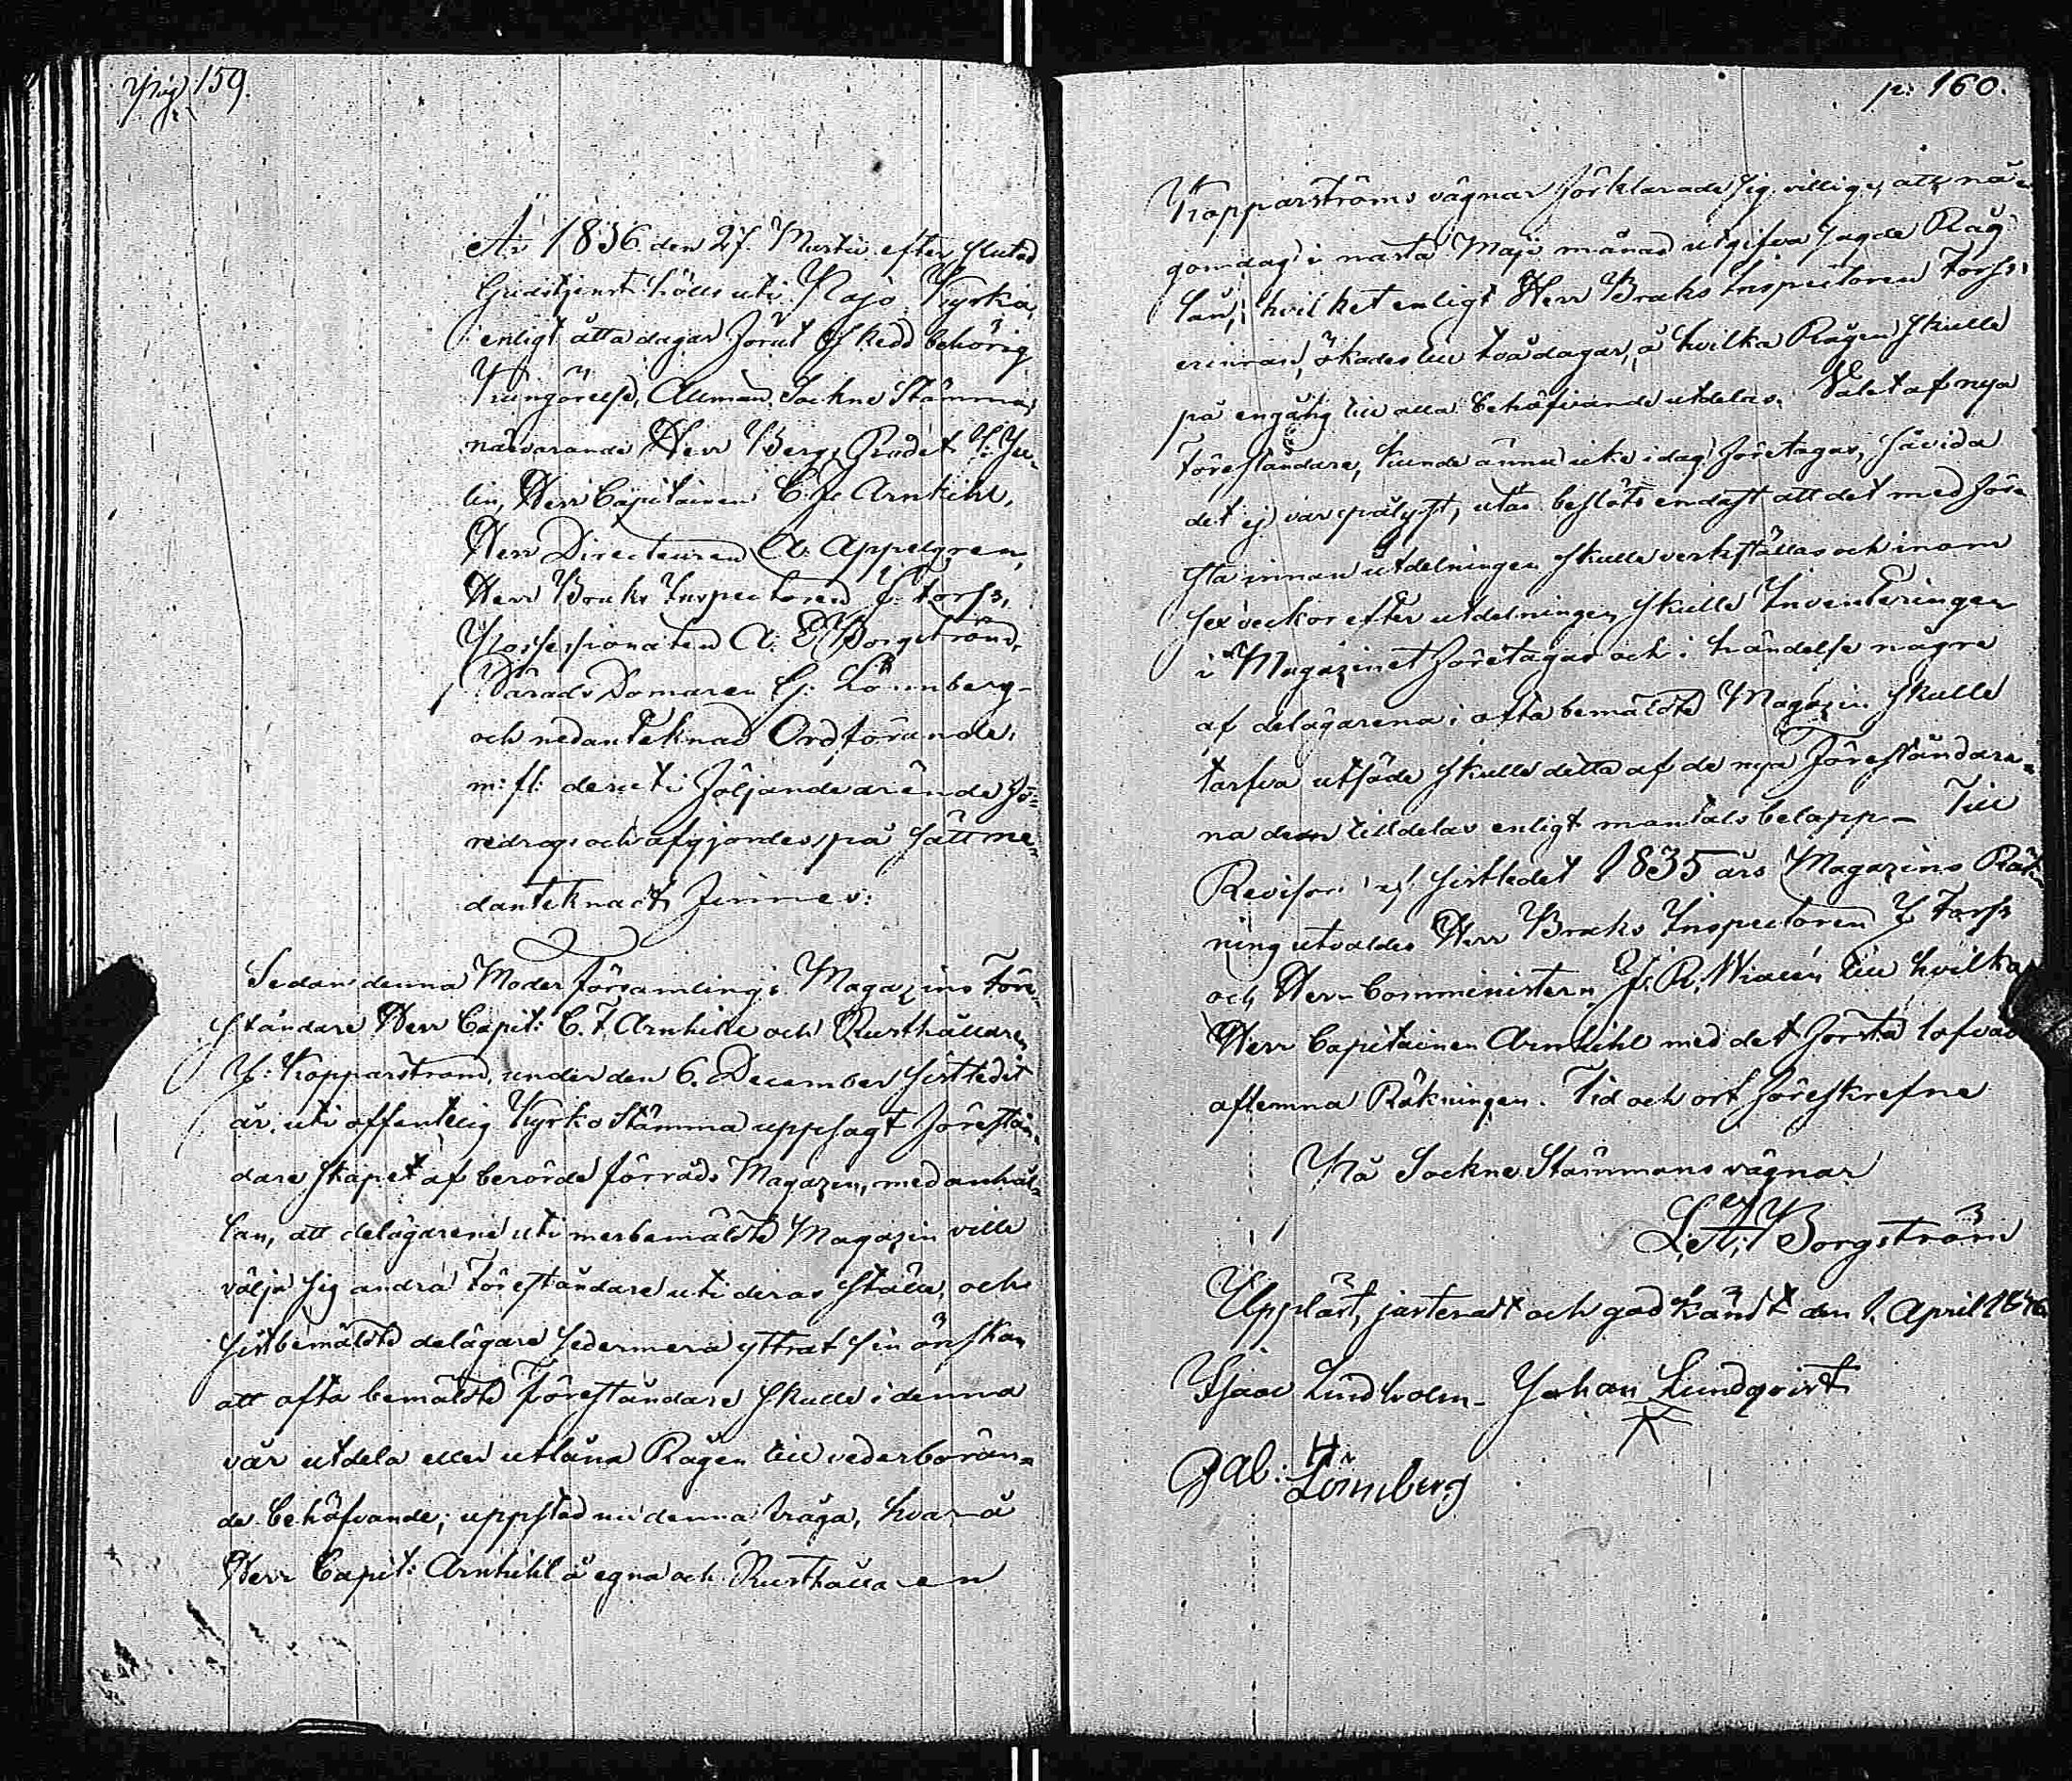 Pag. 159.
År 1836 den 27. Martii efter slutad
Gudstjenst hölls uti Pojo Kyrka,
enligt åtta dagar förut skedd behörig
Kungörelse, Allmän Sockne Stämma,
närvarande Herr Bergs Rådet J: Ju-
lin, Herr Capitainen C. F. Arnkihl,
Herr Directeuren A. Appelgren,
Herr Bruks Inspectoren J. Forss,
Possessionaten A. E. Borgström,
Härads Domaren G: Lönnberg
och nedanteknad Ordförande,
m: fl: deruti följande ärende fö-
redrogs och afgjordes på sätt ne-
danteknadt finnes:
Sedan denna Moder församlings Magazins Före-
ståndare Herr Capit: C. F. Arnkihl och Rusthållaren
J: Kopparström, under den 6. December sistledit
år, uti offentelig Kyrko Stämma uppsagt förestån-
dareskapet af berörde förråds Magazin, med anhål-
lan, att delägarene uti merbemäldte Magazin ville
välja sig andra Föreståndare uti deras ställe, och
sistbemäldte delägare sedermera yttrat sin önskan
att ofta bemäldte Föreståndare skulle i denna
vår utdela eller utlåna Rågen till vederböran-
de behöfvande; uppstod nu denna fråga, hvarå
Herr Capit: Arnkihl å egna och Rusthållaren
p: 160.
Kopparströms vägnar förklarade sig villig, att nå-
gon dag i nästa Maji månad utgifva sagde Råg
lån, hvilket enligt Herr Bruks Inspectoren Forss's
erinran, ökades till två dagar, å hvilka Rågen skulle
på en gång till alla behöfvande utdelas. Valet af nya
Föreståndare, kunde ännu icke i dag företagas, såvida
det ej var pålyst, utan beslöts endast att det med förs
sta innan utdelningen skulle verkställas och inom
sex veckor efter utdelningen skulle Inventeringen
i Magazinet företagas och i händelse några
af delägarena i ofta bemäldte Magazin skulle
tarfva utsäde skulle detta af de nya Föreståndare-
na dem tilldelas enligt mantals belopp – Till
Revisorer af sistledet 1835 års Magazins Räk-
ning utvaldes Herr Bruks Inspectoren J Forss
och Herr Comministern J. R. till hvilka
Herr Capitainen Arnkihl med det första lofvade
aflemna Räkningen. Tid och ort föreskrefne
På Sockne Stämmans vägnar
Borgström
Uppläst, justeradt och godkändt den 1. April 1836
Isaac Lindholm – Johan Lundqvist
Gab: Lönnberg